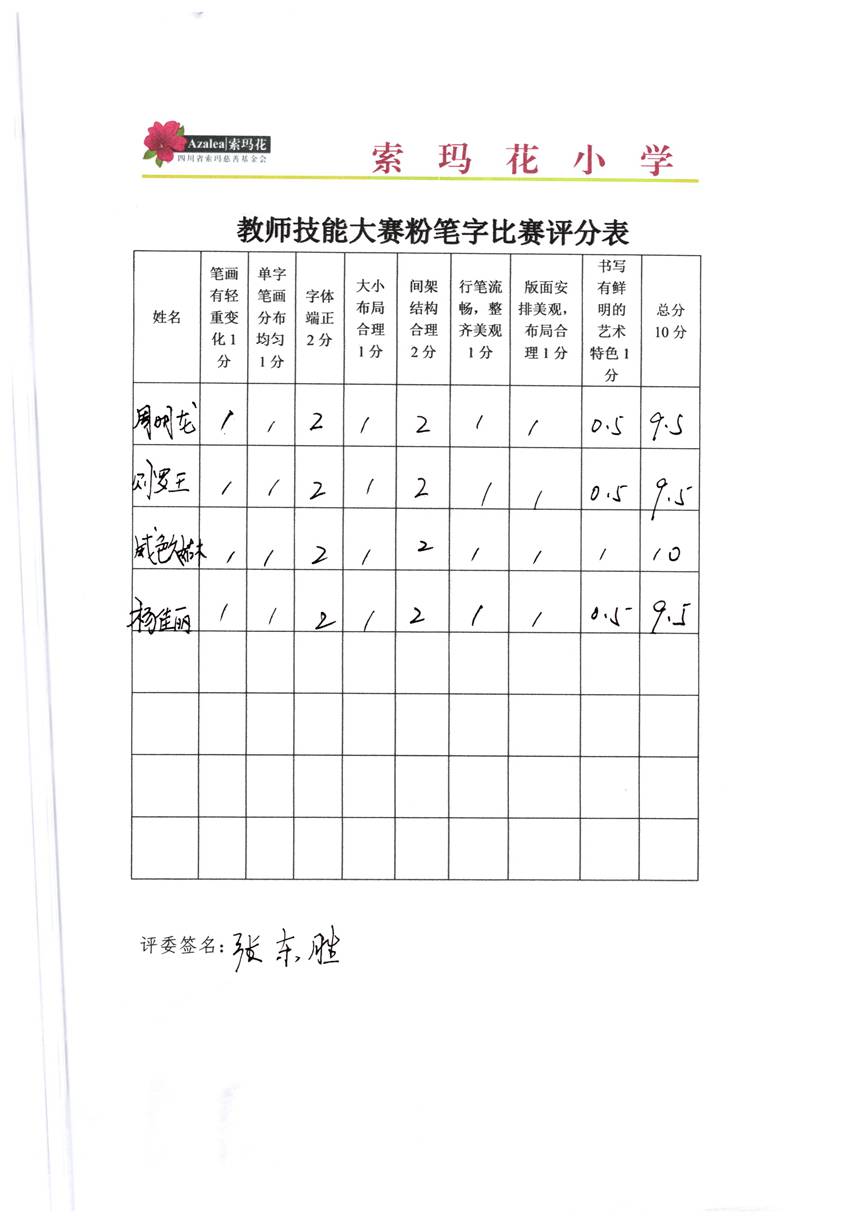 Azalea|索玛花
四川省索玛慈善基金会
索玛花小学
教师技能大赛粉笔字比赛评分表
姓名 笔画有轻重变化1分 单字笔画分布均匀1分 字体端正2分 大小布局合理1分 间架结构合理2分 行笔流畅，整齐美观1分 版面安排美观，布局合理1分 书写有鲜明的艺术特色1分 总分10分
周明龙 1 1 2 1 2 1 1 0.5 9.5
刘罗王 1 1 2 1 2 1 1 0.5 9.5
1 1 2 1 2 1 1 1 10
杨佳丽 1 1 2 1 2 1 1 0.5 9.5
评委签名：张东胜